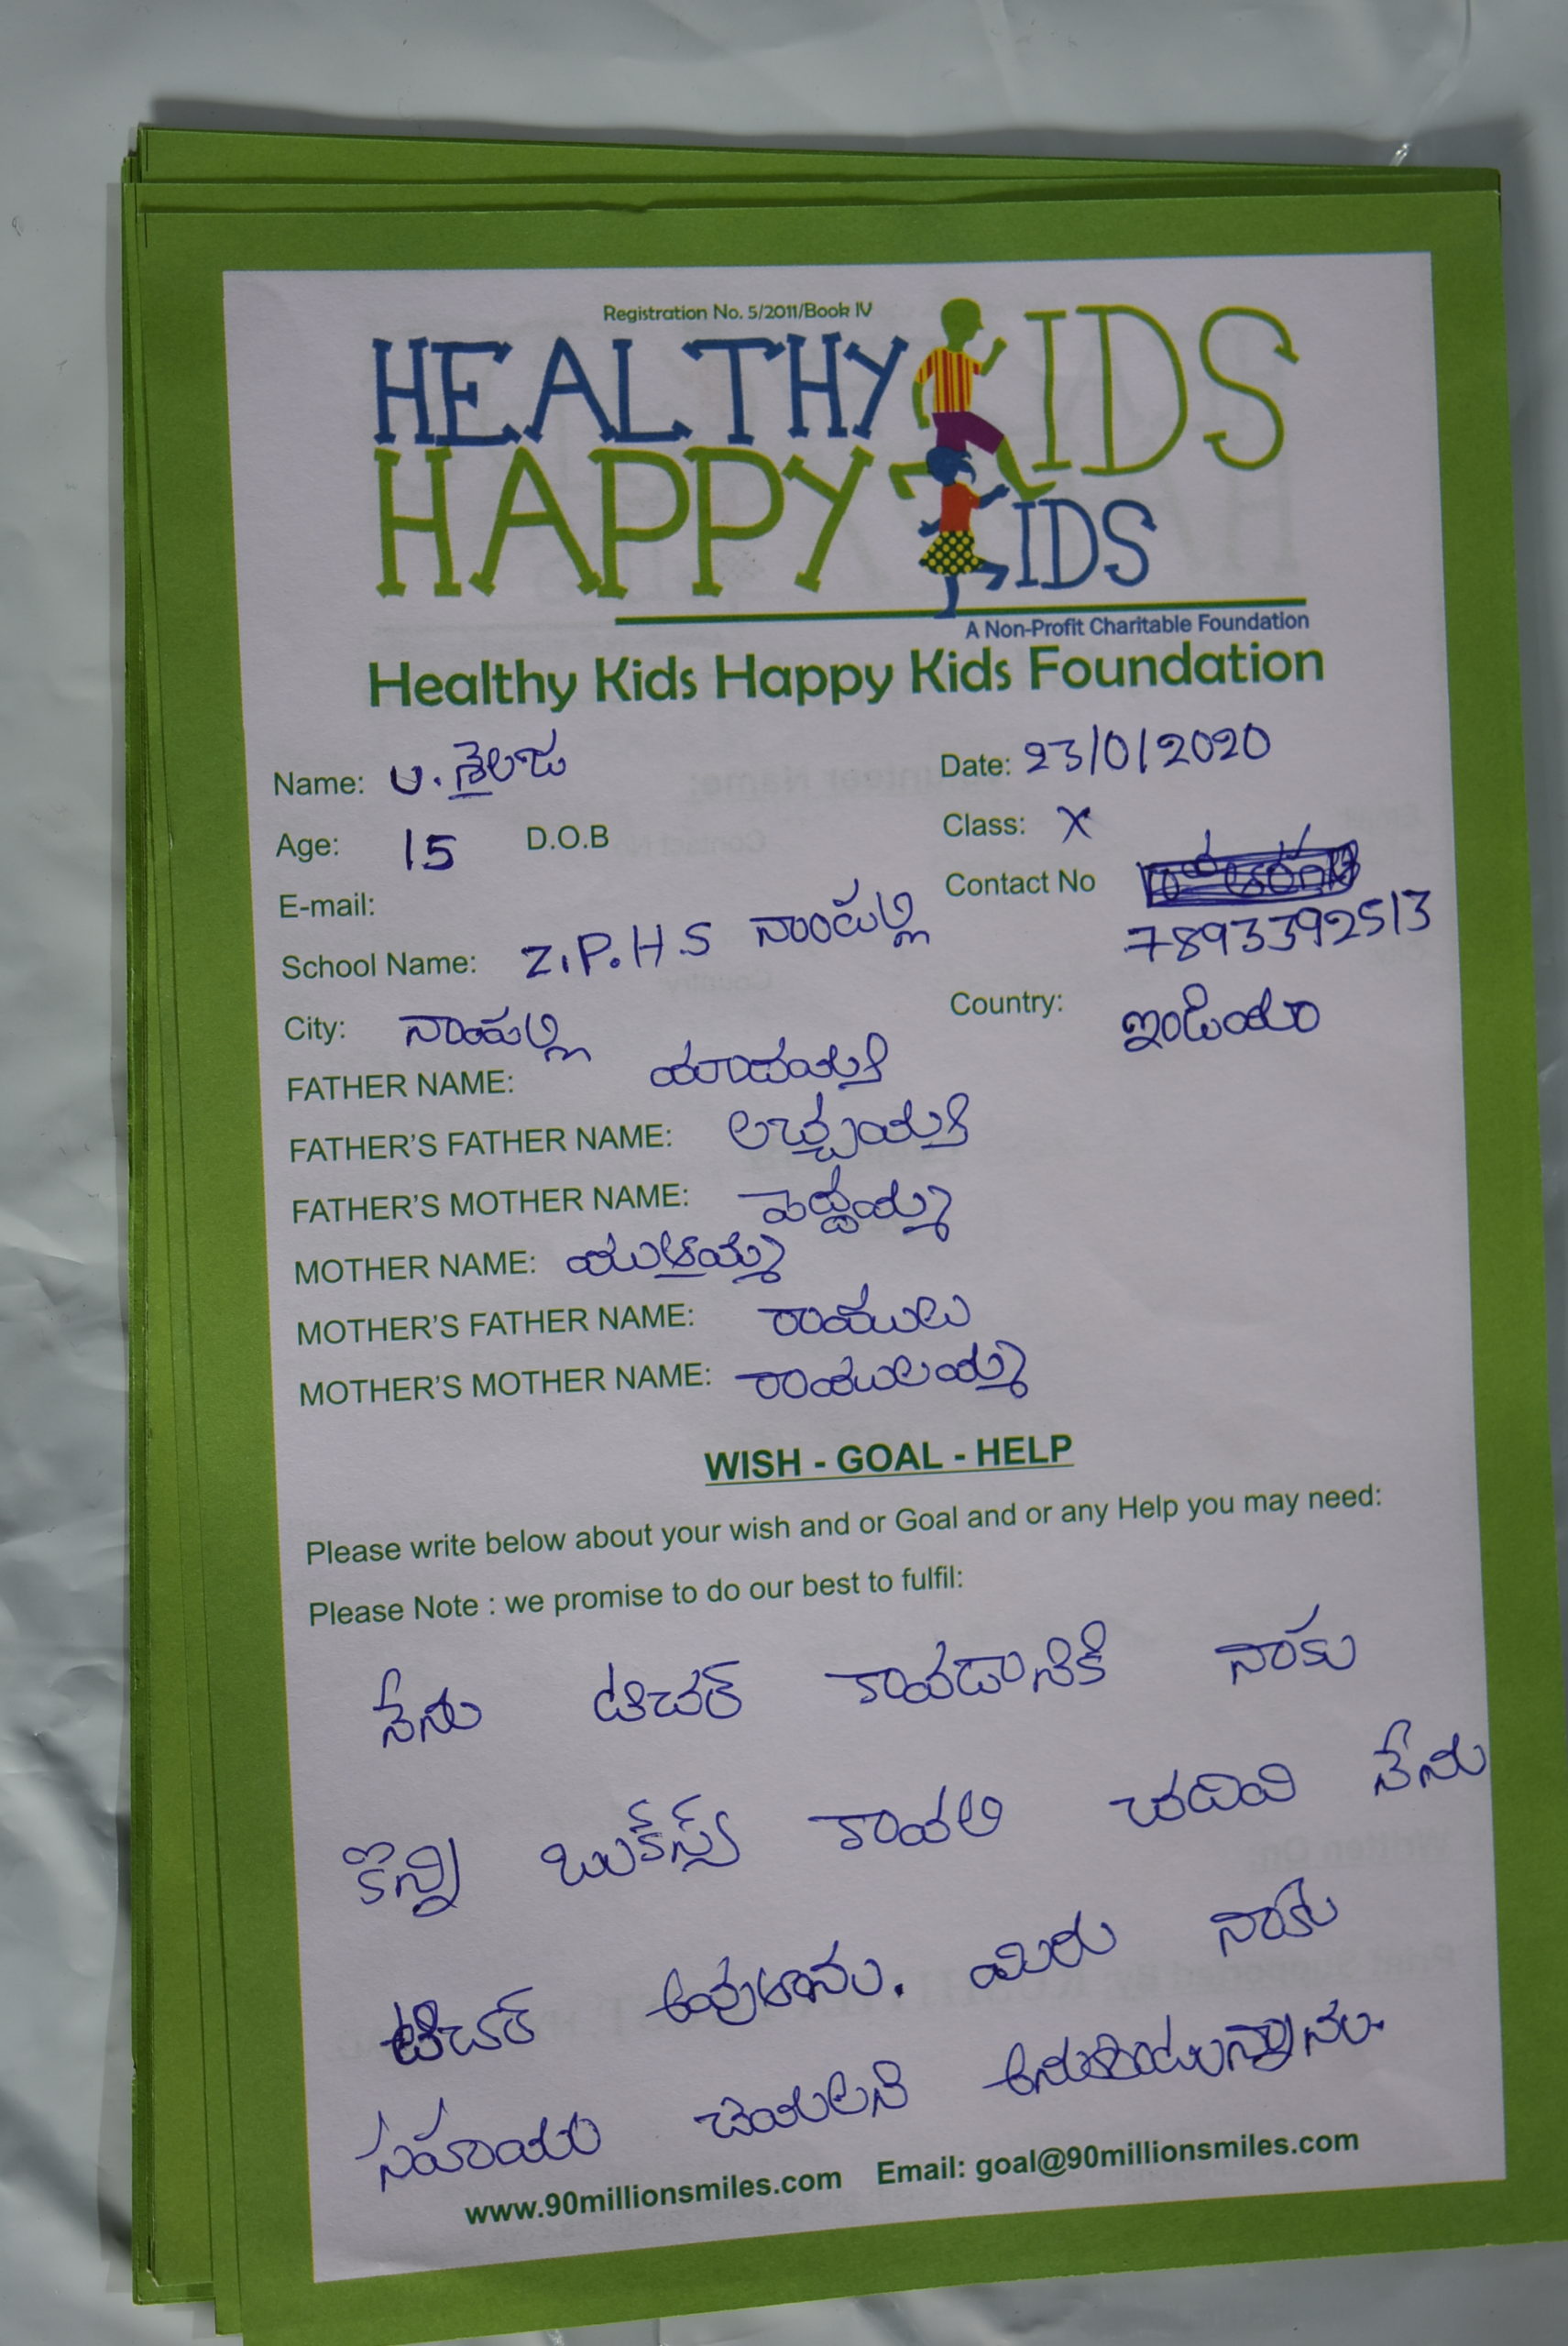 Registration No. 5/2011/Book IV
HEALTHY KIDS
HAPPY KIDS
A Non-Profit Charitable Foundation
Healthy Kids Happy Kids Foundation
Name: ల. శైలజ Date: 23/0/2020
Age: 15 D.O.B Class: X
E-mail: Contact No
School Name: Z.P.H S నాంపల్లి 7893392513
City: నాంపల్లి Country: ఇండియా
FATHER NAME:
FATHER'S FATHER NAME: లచ్చయ్య
FATHER'S MOTHER NAME: పెద్దమ్మ
MOTHER NAME:
MOTHER'S FATHER NAME: రాములు
MOTHER'S MOTHER NAME: రాములమ్మ
WISH - GOAL - HELP
Please write below about your wish and or Goal and or any Help you may need:
Please Note : we promise to do our best to fulfil:
నేను టిచర్ కావడానికి నాకు
కొన్ని బుక్స్ కావలి చదివి నేను
టిచర్ అవుతాను. మిరు నాకు
సహయం చెయలని అనుకుంటున్నాను.
www.90millionsmiles.com Email: goal@90millionsmiles.com